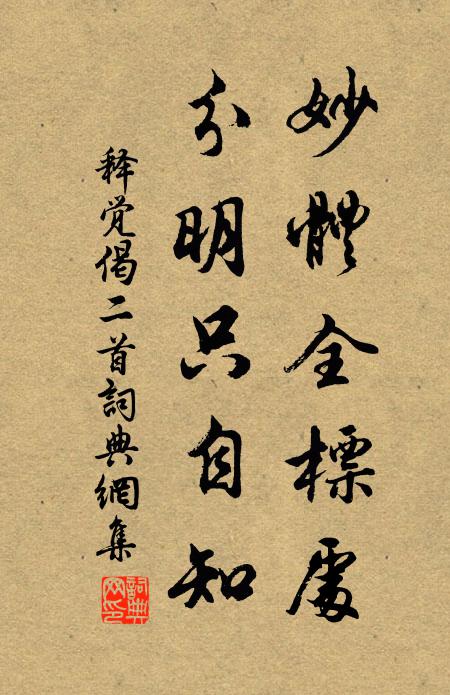 妙體全標處
分明只自知
释觉偈二首詞典網集
詞典
网印